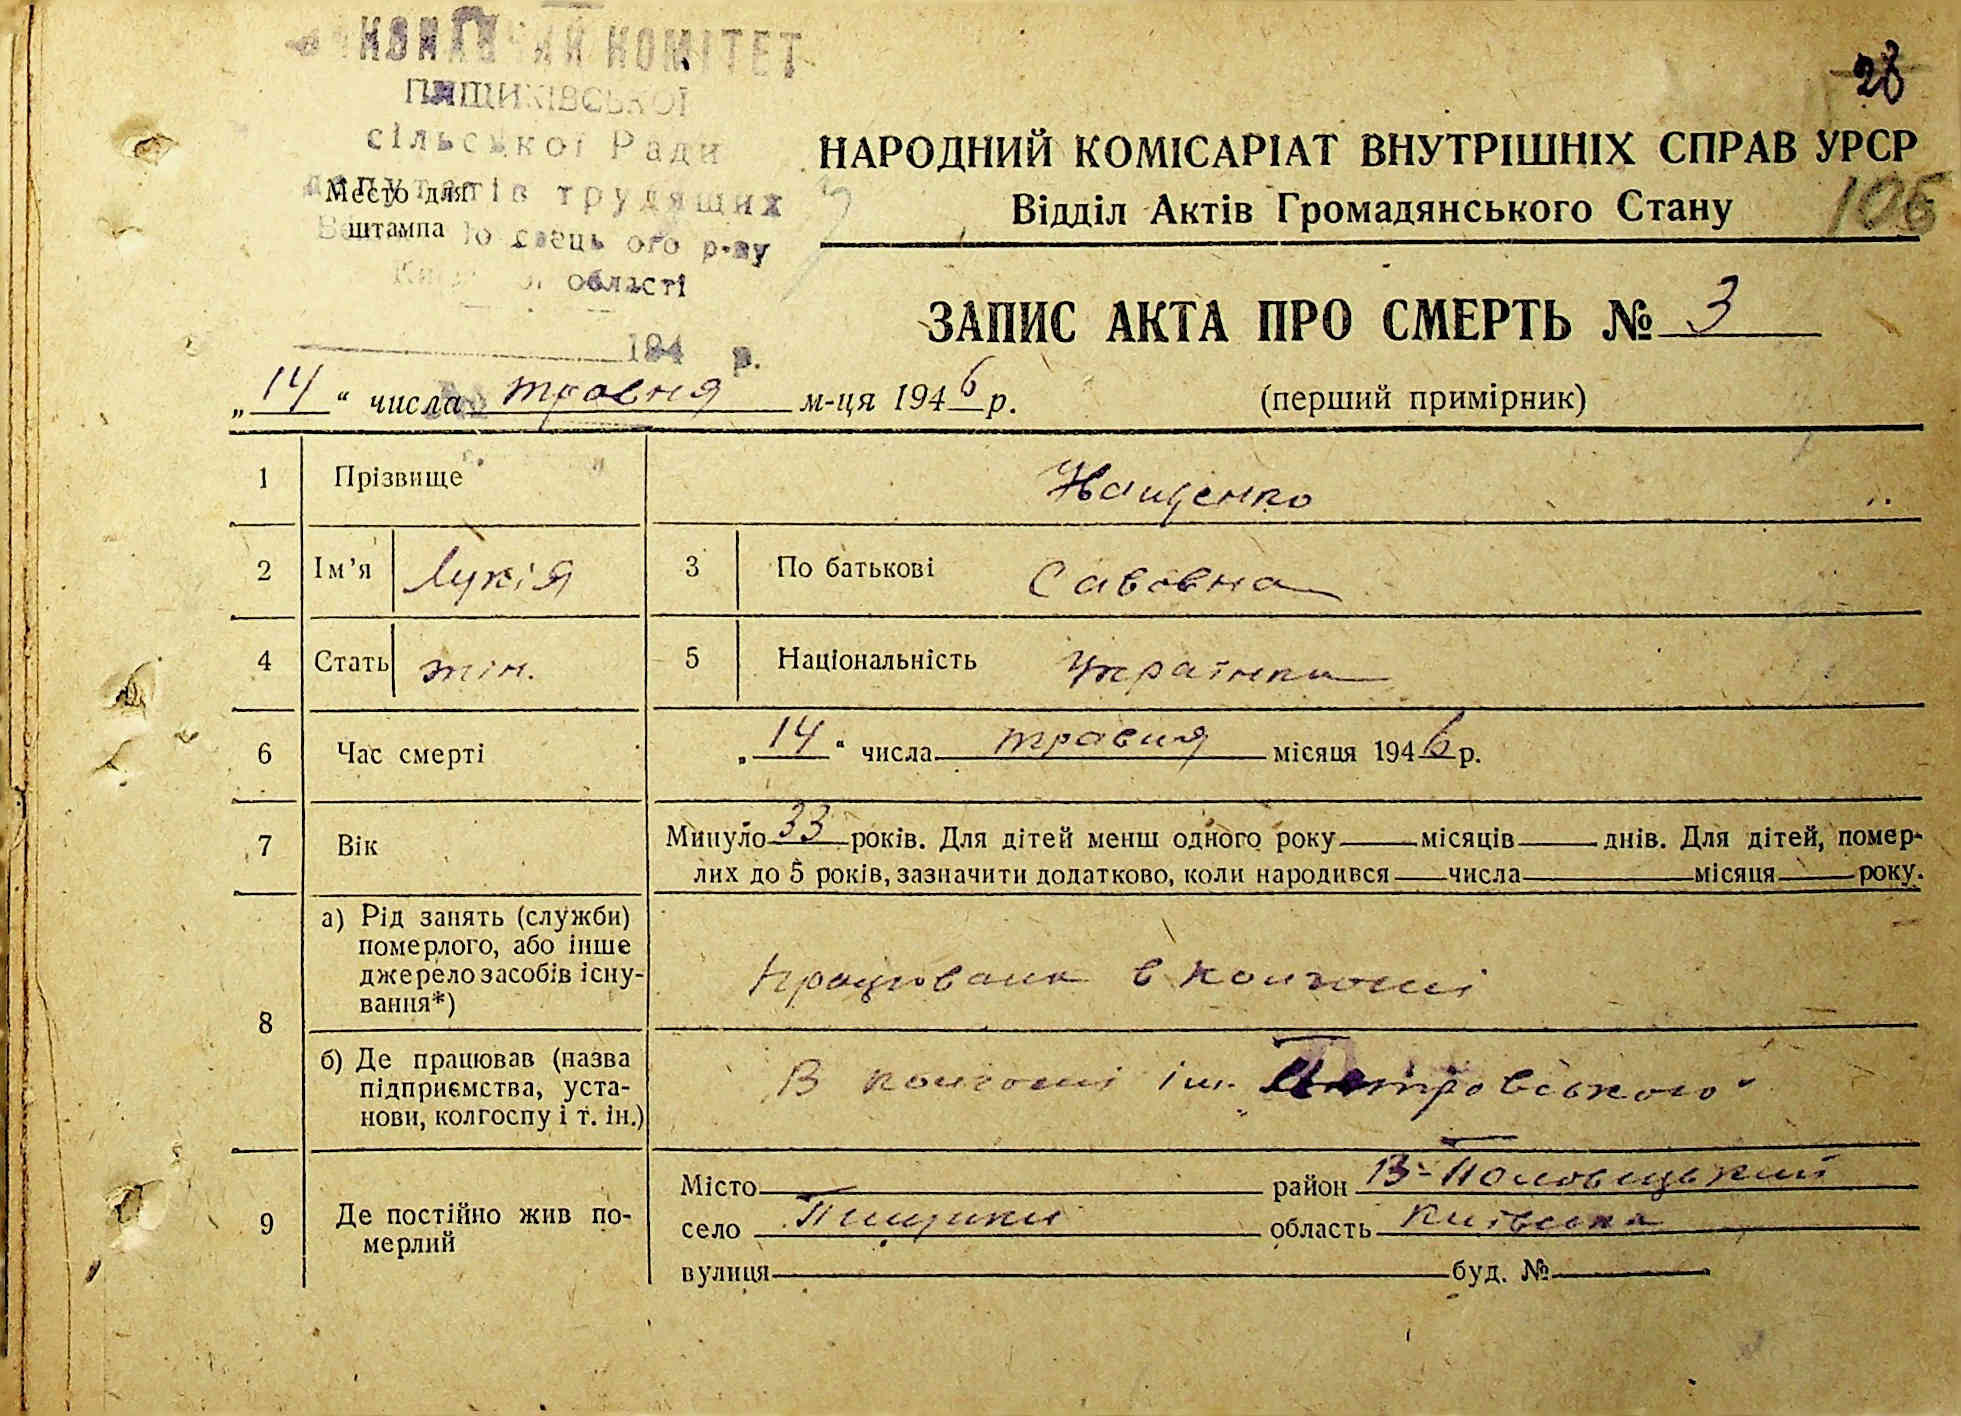 28
ВИКОНАВЧИЙ КОМІТЕТ
ПИЩИКІВСЬКОЇ
сільської Ради
депутатів трудящих
р-ну
області
194 р.
Место для
штампа
НАРОДНИЙ КОМІСАРІАТ ВНУТРІШНІХ СПРАВ УРСР
Відділ Актів Громадянського Стану
106
ЗАПИС АКТА ПРО СМЕРТЬ № 3
„14“ числа травня м-ця 1946 р.
(перший примірник)
1 Прізвище Нащенко
2 Ім’я Лукія 3 По батькові Савовна
4 Стать жін. 5 Національність Українка
6 Час смерті „14“ числа травня місяця 1946 р.
7 Вік Минуло 33 років. Для дітей менш одного року місяців днів. Для дітей, помер-
лих до 5 років, зазначити додатково, коли народився числа місяця року.
8 а) Рід занять (служби)
померлого, або інше
джерело засобів існу-
вання*)
Працювала в колгоспі
б) Де працював (назва
підприємства, уста-
нови, колгоспу і т. ін.)
В колгоспі ім. „Петровського“
9 Де постійно жив по-
мерлий
Місто район В-Половецький
село Пищики область Київська
вулиця буд. №